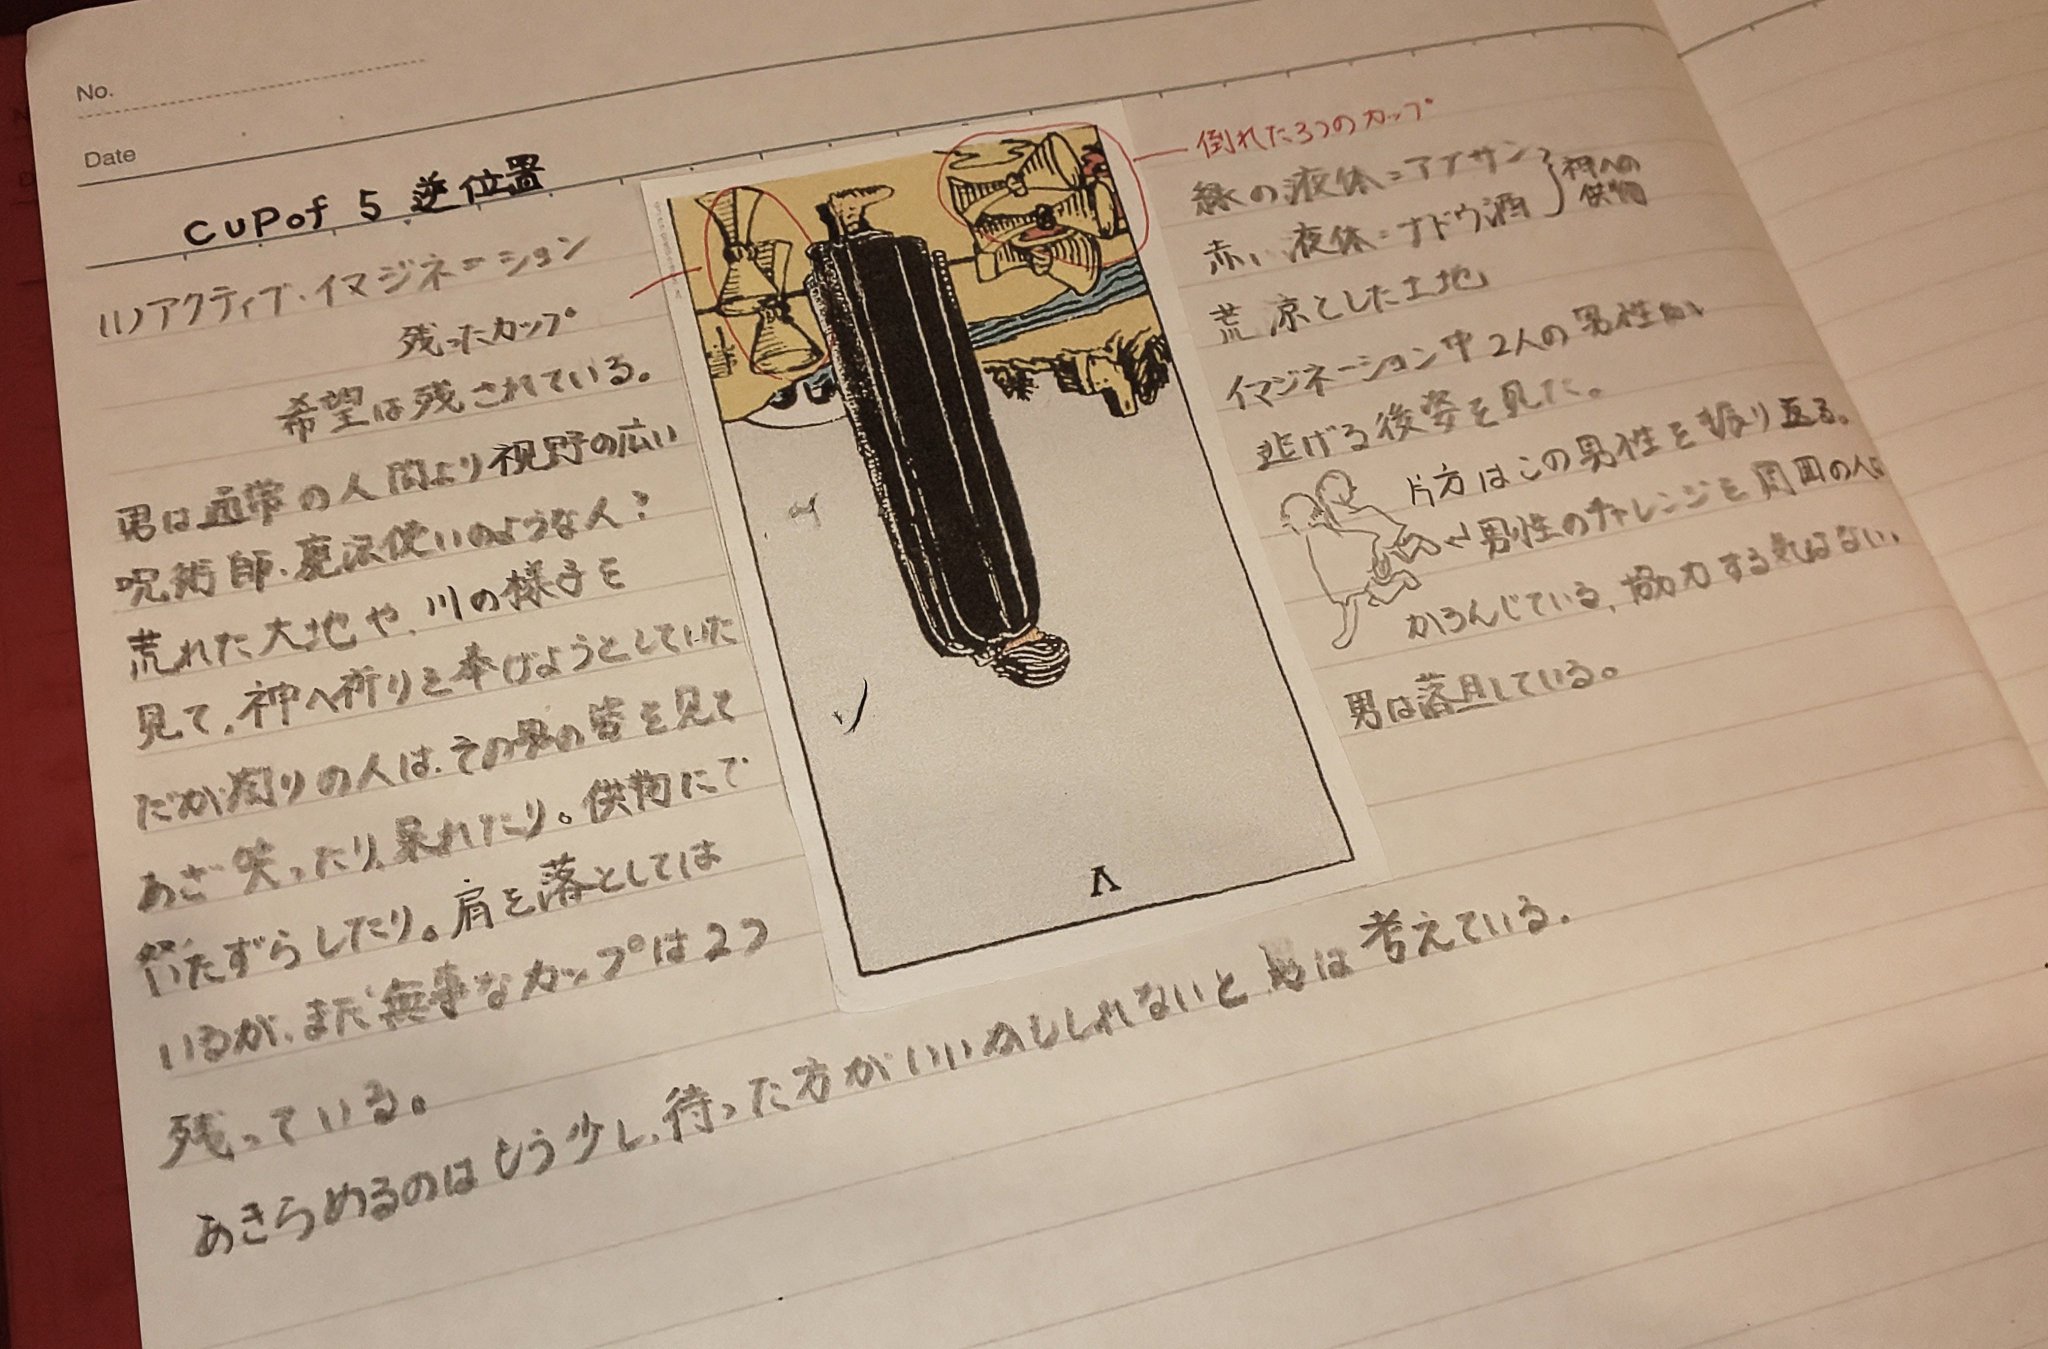 No.
Date
CUPof 5 逆位置
(1)アクティブ・イマジネーション
残ったカップ
希望は残されている。
男は通常の人間より視野の広い
呪術師、魔法使いのような人?
荒れた大地や、川の様子を
見て、神へ祈りを奉げようとしていた
だが周りの人は、その男の姿を見て
あざ笑ったり、呆れたり。供物にで
いたずらしたり。肩を落としては
いるが、まだ無事なカップは2つ
残っている。
あきらめるのはもう少し、待った方がいいかもしれないと男は考えている.
倒れた3つのカップ
緑の液体=アブサン
赤い液体=ブドウ酒
神への
供物
荒涼とした土地
イマジネーション中2人の男性が
逃げる後姿を見た。
片方はこの男性を振り返る。
男性のチャレンジを周囲の人は
かろんじている、協力する気はない、
男は落胆している。
V